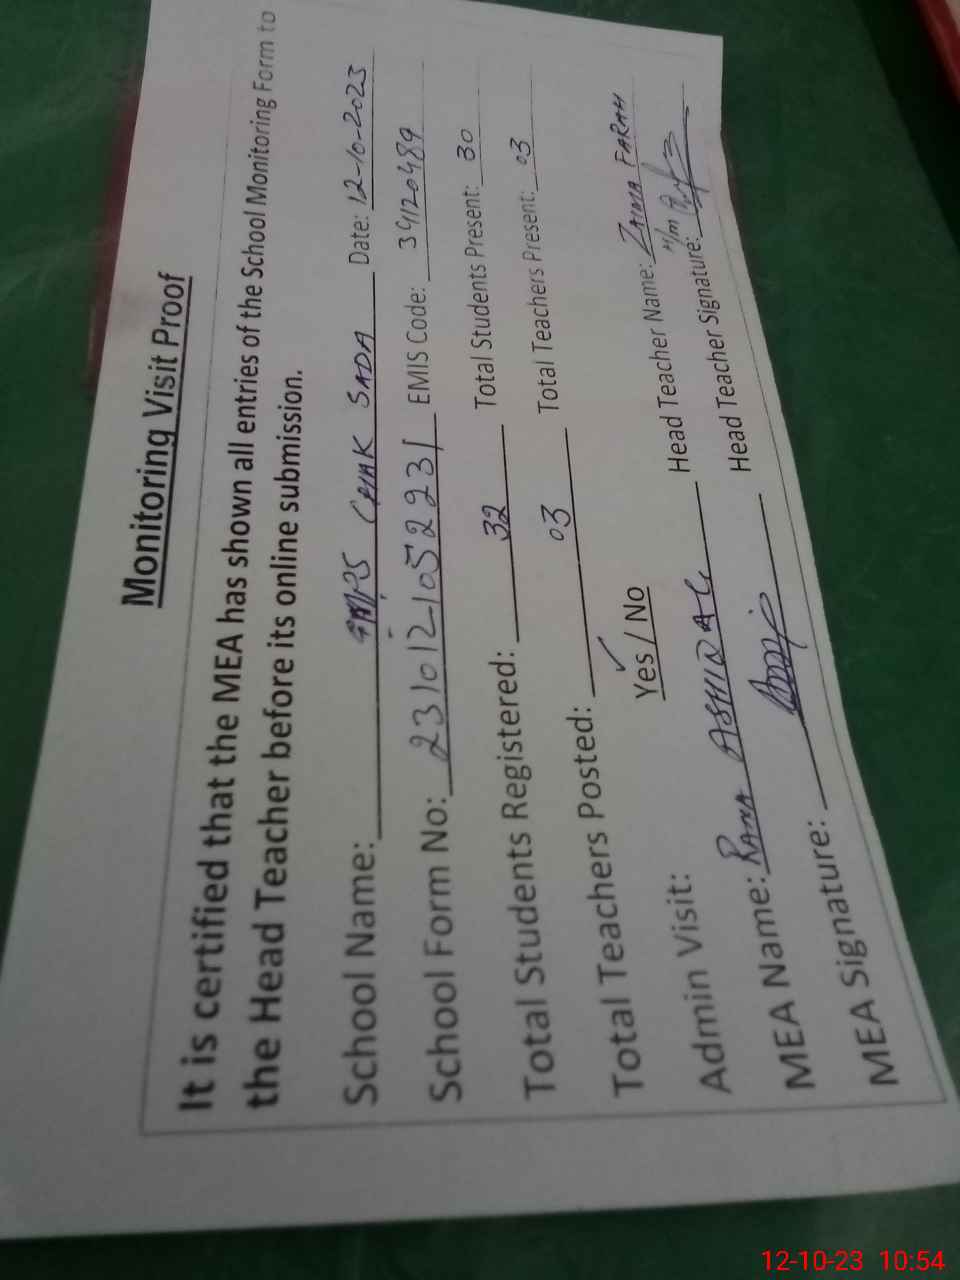 Monitoring Visit Proof
It is certified that the MEA has shown all entries of the School Monitoring Form to
the Head Teacher before its online submission.
School Name: CHAK SADA Date: 12-10-2023
School Form No: 231012-1052231 EMIS Code: 39120489
Total Students Registered: 32 Total Students Present: 30
Total Teachers Posted: 03 Total Teachers Present: 03
Admin Visit: Yes / No
MEA Name: RANA ASHIQ ALI Head Teacher Name: ZAIMA FARAH
MEA Signature: Head Teacher Signature: H/m
12-10-23 10:54